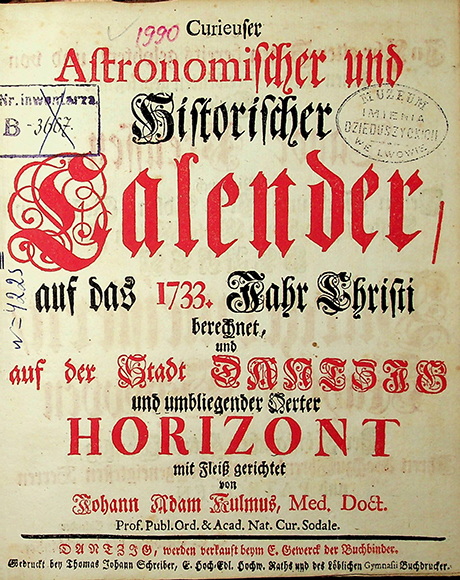 1990
Curieuser
Astronomischer und
Historischer
Nr. inwentarza
B-3667.
MUZEUM
IMIENIA
DZIEDUSZYCKICH
WE LWOWIE
Calender,
auf das 1733. Jahr Christi
berechnet,
und
auf der Stadt DANTZIG
und umbliegender Oerter
HORIZONT
mit Fleiß gerichtet
von
Johann Adam Kulmus, Med. Doct.
Prof. Publ. Ord. & Acad. Nat. Cur. Sodale.
DANTZIG, werden verkauft beym E. Gewerck der Buchbinder.
Gedruckt bey Thomas Johann Schreiber, E. Hoch-Edl. Hochw. Raths und des Löblichen Gymnasii Buchdrucker.